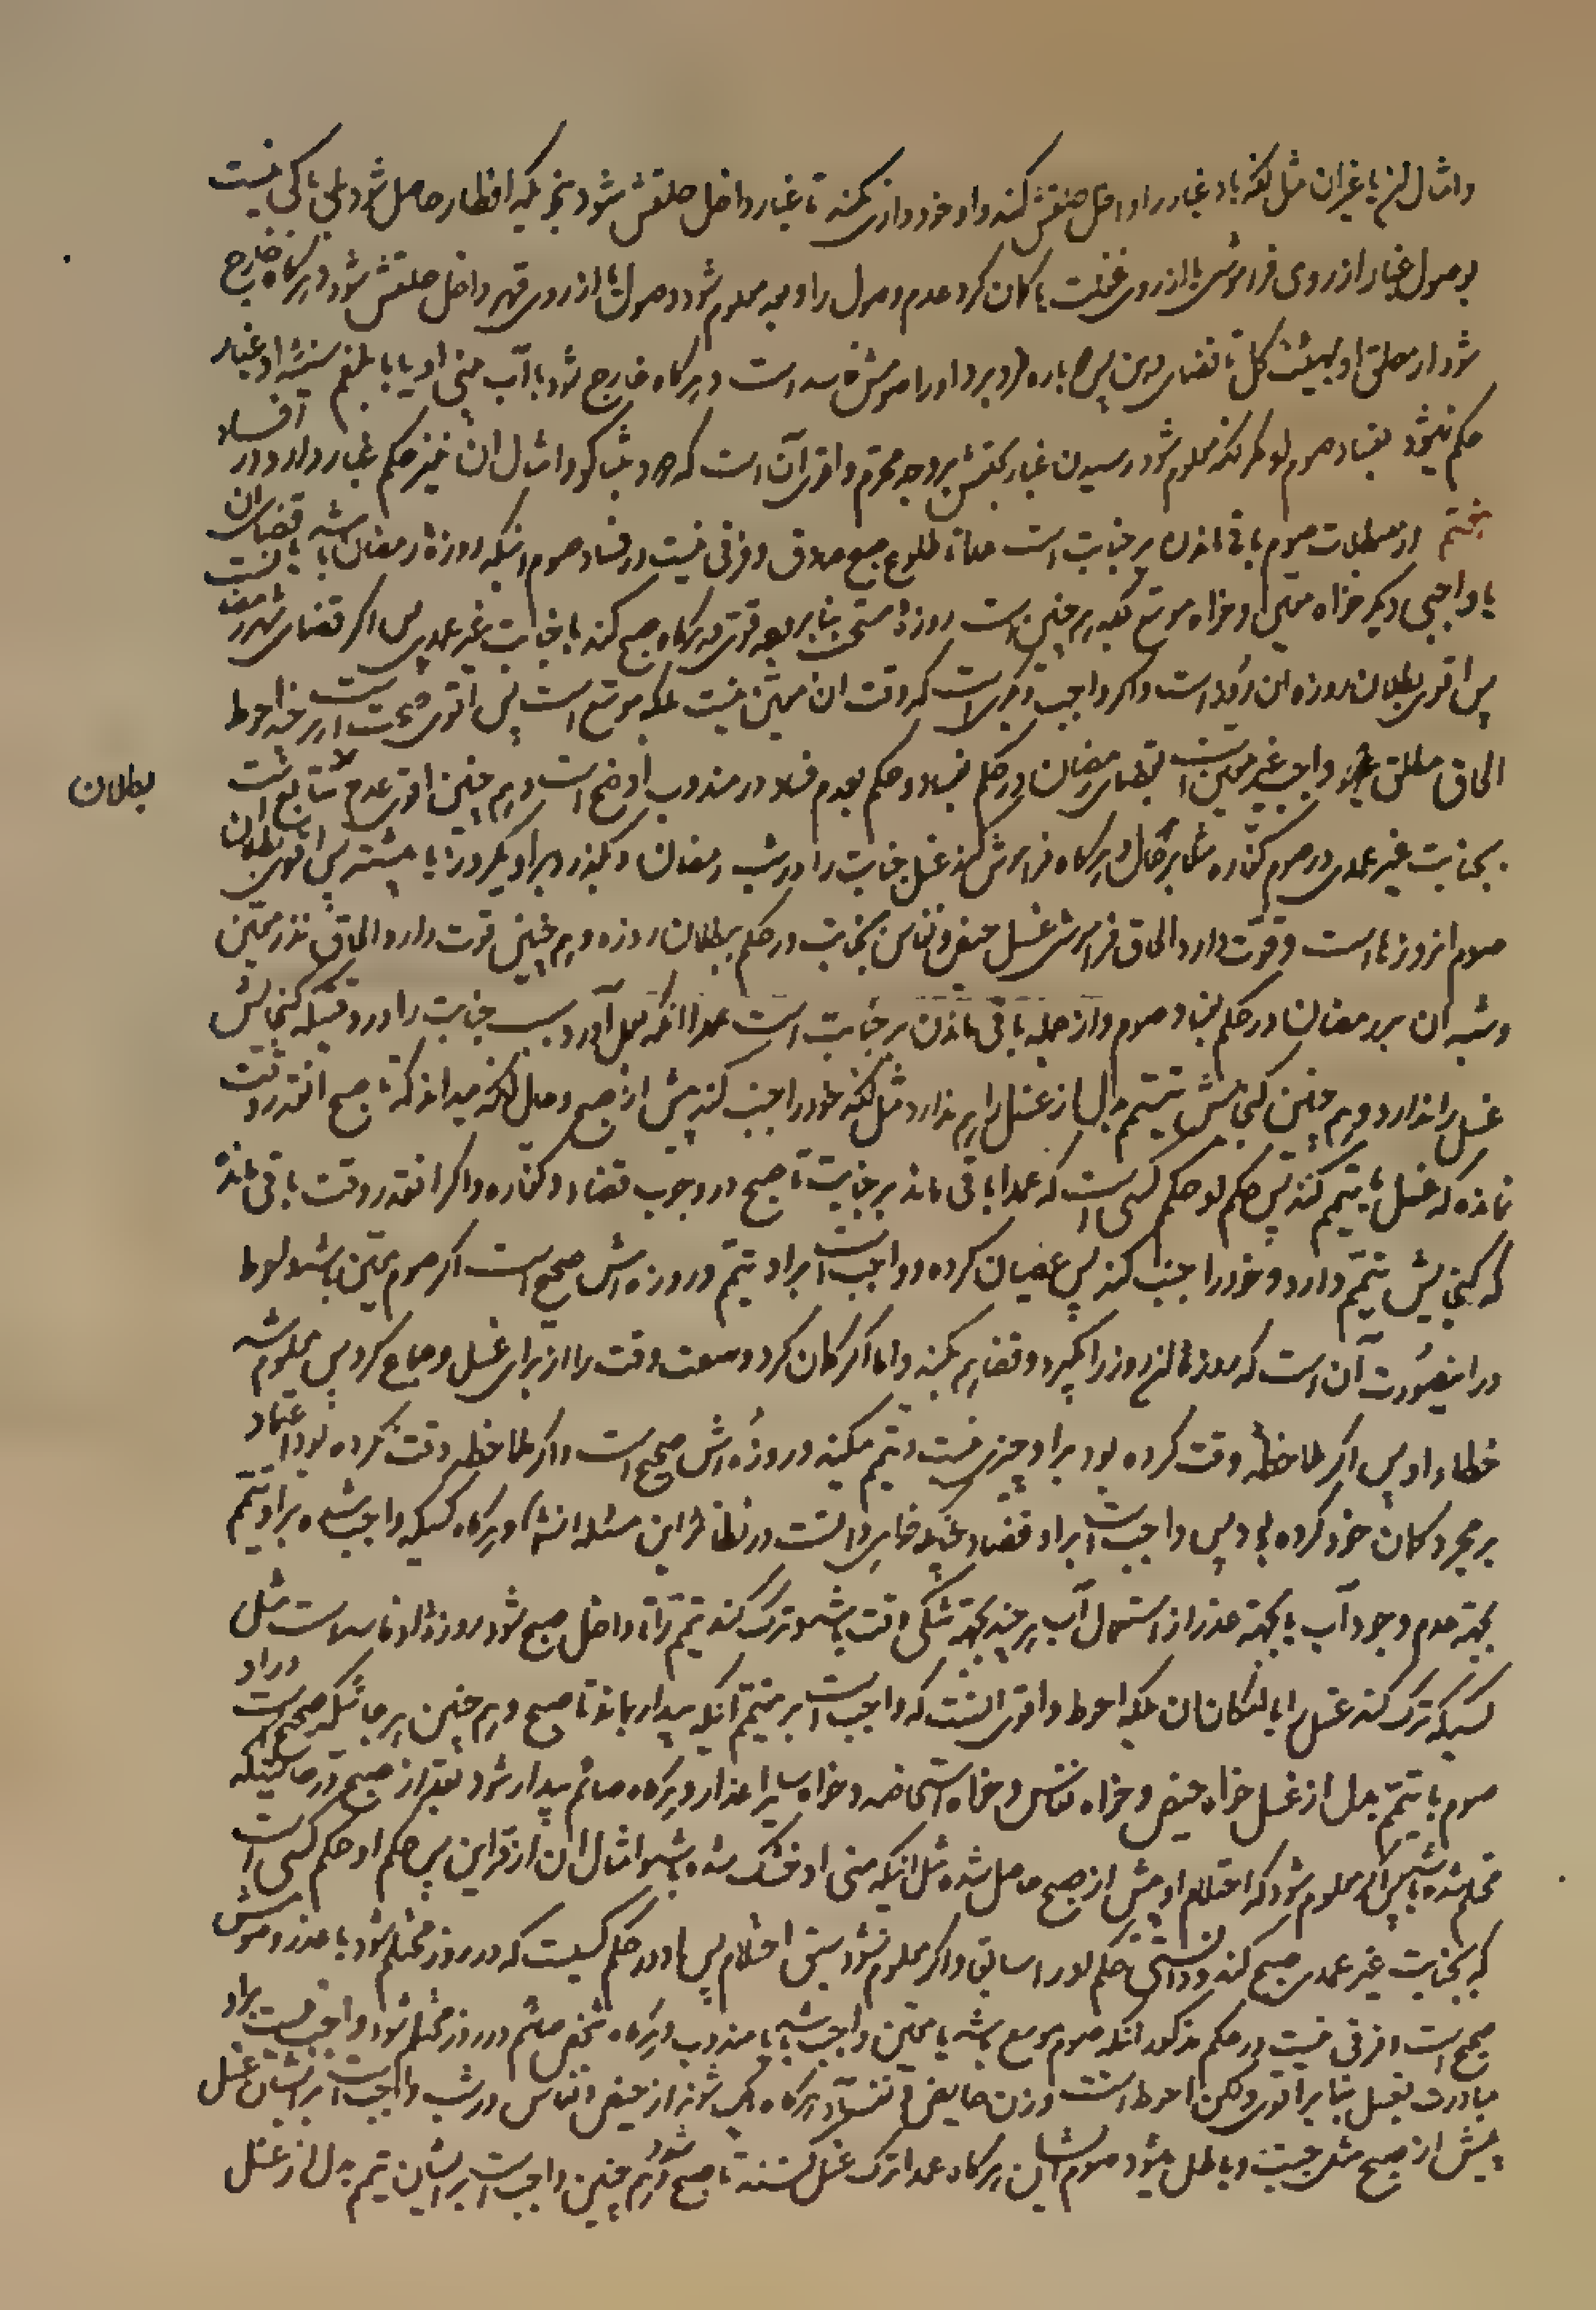 وامثال آن یا غیر آن مثل آنکه باد غبار را داخل حلقش کند و او خودداری نکند تا غبار داخل حلقش شود بنحویکه افطار حاصل شود بلی باکی نیست
بوصول غبار از روی فراموشی یا از روی غفلت یا گمان کرد عدم وصول را و بعد معلوم شود وصول یا از روی قهر داخل حلقش شود و هرگاه خارج
شود از حلق او بهیئت گل تا فضای دهن پس دوباره فرو برد او را صومش فاسد است و هرگاه خارج شود با آب بینی او یا با بلغم سینهٔ او غبار
حکم نمیشود بفساد صوم او مگر آنکه معلوم شود رسیدن غبار بحلقش بروجه محرم و اقوی آن است که دود تنباکو و امثال آن نیز حکم غبار دارد در افساد
هشتم از مبطلات صوم باقی ماندن بر جنابت است عمدا تا طلوع صبح صادق و فرقی نیست در فساد صوم اینکه روزهٔ رمضان باشد یا قضای آن
یا واجبی دیگر خواه معین و خواه موسع بلکه هم چنین است روزهٔ مستحب بنابر وجه قوی و هرگاه صبح کند با جنابت غیر عمدی پس اگر قضای شهر رمضانست
پس اقوی بطلان روزه آن روز است و اگر واجب دیگریست که وقت آن معین نیست بلکه موسع است پس اقوی صحت است هر چند احوط
الحاق مطلق واجب غیر معین است بقضای رمضان در حکم بفساد و حکم بعدم فساد در مندوب اوضح است و هم چنین اقوی عدم بطلان تتابع است
بجنابت غیر عمدی در صوم کفاره علی ای حال و هرگاه فراموش کند غسل جنابت را در شب رمضان و بگذرد بر او یکروز یا بیشتر پس اقوی بطلان
صوم آنروزها است و قوت دارد الحاق فراموشی غسل حیض و نفاس بجنابت در حکم ببطلان روزه و هم چنین قوت دارد الحاق نذر معین
و شبه آن برمضان در حکم بفساد صوم و از جمله باقی ماندن بر جنابت است عمدا آنکه بعمل آورد سبب جنابت را در وقتیکه گنجایش
غسل را ندارد و هم چنین گنجایش تیمم بدل از غسل را هم ندارد مثل آنکه خود را جنب کند پیش از صبح و حال آنکه میداند که تا صبح آنقدر وقت
نمانده که غسل یا تیمم کند پس حکم او حکم کسی است که عمدا باقی ماند بر جنابت تا صبح در وجوب قضا و کفاره و اگر آنقدر وقت باقی ماند
که گنجایش تیمم دارد و خود را جنب کند پس عصیان کرده و واجب است بر او تیمم و روزه اش صحیح است اگر صوم معین باشد و احوط
در اینصورت آن است که روزهٔ آنروز را بگیرد و قضا هم بکند و اما اگر گمان کرد وسعت وقت را از برای غسل و جماع کرد پس معلوم شد
خطای او پس اگر ملاحظهٔ وقت کرده بود بر او چیزی نیست و تیمم میکند و روزه اش صحیح است و اگر ملاحظه وقت نکرده بود اعتماد
بر مجرد گمان خود کرده بود پس واجب است بر او قضا چنانکه خواهی دانست در نظائر این مسئله انشاء و هرگاه کسیکه واجب شده بر او تیمم
بجهة عدم وجود آب یا بجهة عذر از استعمال آب هر چند بجهة تنگی وقت باشد ترک کند تیمم را تا داخل صبح شود روزهٔ او فاسد است مثل
کسیکه ترک کند غسل را با امکان آن بلکه احوط و اقوی آنست که واجب است بر متیمم آنکه بیدار بماند تا صبح و هم چنین هر جائیکه صحیح است در او
صوم با تیمم بدل از غسل خواه حیض و خواه نفاس و خواه استحاضه و خواه سایر اعذار و هرگاه صائم بیدار شود بعد از صبح در حالتیکه
محتلم شده باشد پس اگر معلوم شود که احتلام او پیش از صبح حاصل شده مثل اینکه منی او خشک شده باشد و امثال آن از قراین پس حکم او حکم کسی است
که بجنابت غیر عمدی صبح کند و دانستی حکم او را سابقا و اگر معلوم نشود سبق احتلام پس او در حکم کسیست که در روز محتلم شود با عذر و صومش
صحیح است و فرقی نیست در حکم مذکور آنکه صوم موسع باشد یا معین واجب باشد یا مندوب و هرگاه شخص صائم در روز محتلم شود واجب نیست بر او
مبادرت بغسل بنابر اقوی ولکن احوط است و زن حایض و نفساء هرگاه پاک شوند از حیض و نفاس در شب واجب است بر ایشان غسل
پیش از صبح مثل جنب و باطل میشود صوم ایشان هرگاه عمدا ترک غسل کنند تا صبح شود و هم چنین واجب است بر ایشان تیمم بدل از غسل
بطلان